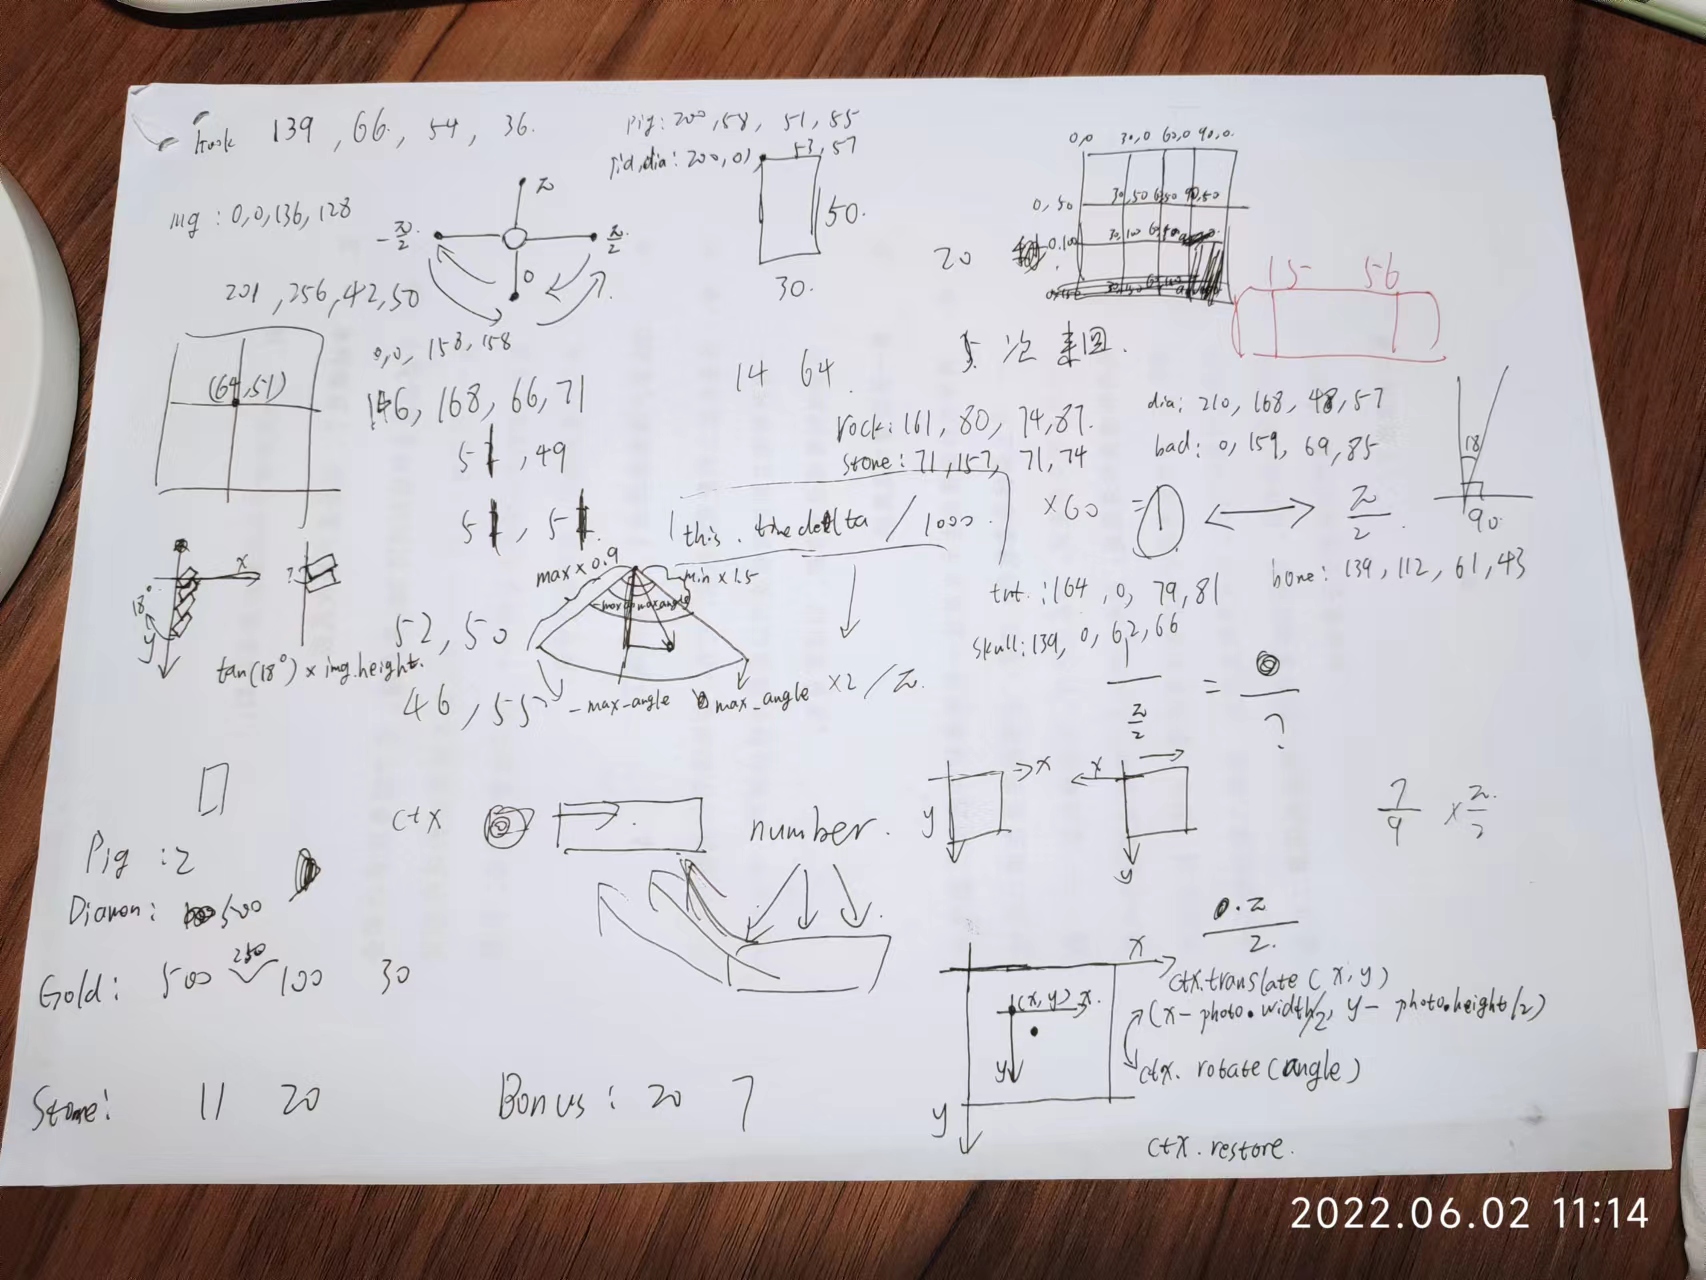 hook 139, 66, 54, 36.
mg: 0,0,136,128
201, 256, 42, 50
(64,51)
π
-π/2
π/2
0
0,0, 158, 158
146, 168, 66, 71
51, 49
52, 50
46, 55
pig: 200, 58, 51, 55
pid,dia: 200, 0, 53, 57
50.
30.
0,0 30,0 60,0 90,0.
0,50 30,50 60,50 90,50
0,100
20
15 56
5 次来回.
14 64
rock: 161, 80, 74, 87.
stone: 71, 157, 71, 74
dia: 210, 168, 48, 57
bad: 0, 159, 69, 85
18
90
this.timedelta / 1000
×60 =
π/2
tnt: 164, 0, 79, 81
bone: 139, 112, 61, 43
skull: 139, 0, 62, 66
max × 0.9
min × 1.5
-max_angle
max_angle
×2/π.
1
π/2
=
?
x
18°
y
tan(18°) × img.height.
ctx
number.
x
y
x
y
7/9 × π/2
Pig: 2
Diamon: 500
250
Gold: 500 100 30
Stone: 11 20
Bonus: 20 7
π
2.
x
ctx.translate(x,y)
(x,y) x.
(x - photo.width/2, y - photo.height/2)
y
ctx.rotate(angle)
y
ctx.restore.
2022.06.02 11:14